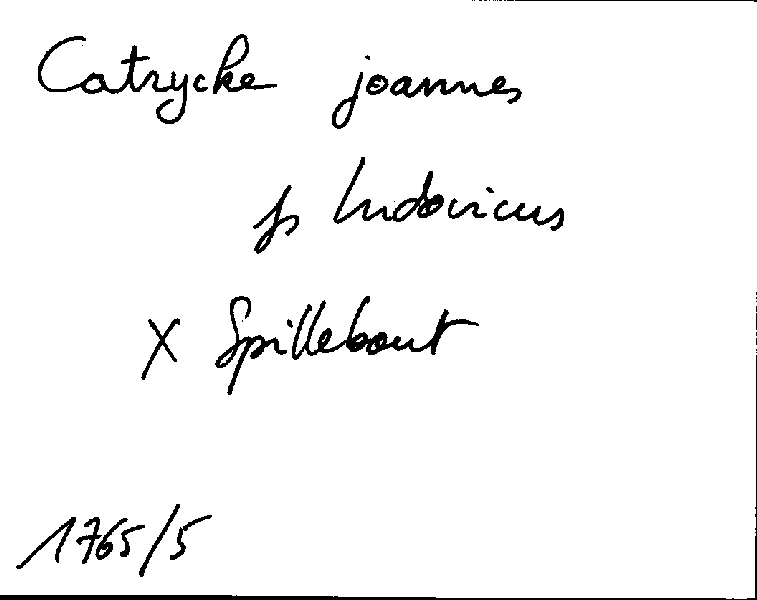 Catrycke joannes
fs Ludovicus
X Spillebout
1765/5